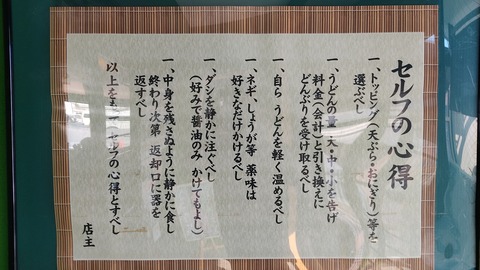 セルフの心得
一、トッピング(天ぷら・おにぎり)等を
選ぶべし
一、うどんの量 大・中・小を告げ
料金(会計)と引き換えに
どんぶりを受け取るべし
一、自ら うどんを軽く温めるべし
一、ネギ、しょうが等 薬味は
好きなだけかけるべし
一、ダシを静かに注ぐべし
(好みで醤油のみ かけてもよし)
一、中身を残さぬように静かに食し
終わり次第 返却口に器を
返すべし
以上をもって セルフの心得とすべし
店主